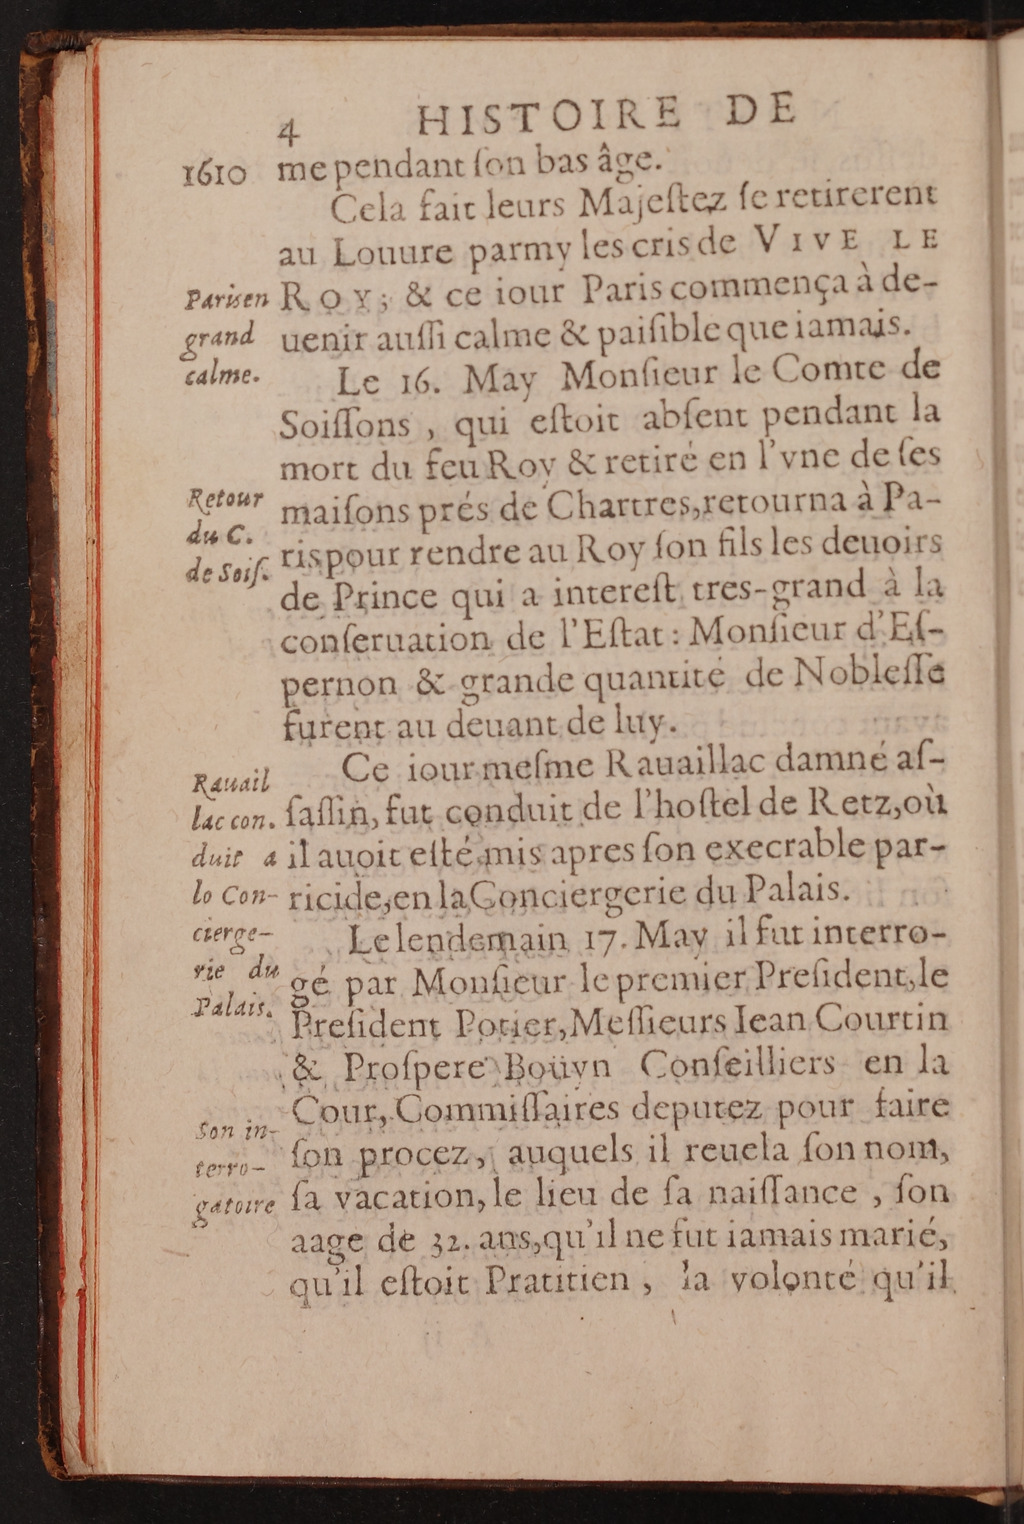 4 HISTOIRE DE
1610 me pendant ſon bas âge.
Cela fait leurs Majeſtez ſe retirerent
au Louure parmy les cris de VIVE LE
Paris en ROY; & ce iour Paris commença à de-
grand uenir auſſi calme & paiſible que iamais.
calme. Le 16. May Monſieur le Comte de
Soiſſons, qui eſtoit abſent pendant la
mort du feu Roy & retiré en l'vne de ſes
Retour maiſons prés de Chartres, retourna à Pa-
du C. ris pour rendre au Roy ſon fils les deuoirs
de Soiſ. de Prince qui a intereſt tres-grand à la
conſeruation de l'Eſtat: Monſieur d'Eſ-
pernon & grande quantité de Nobleſſe
furent au deuant de luy.
Rauail Ce iour meſme Rauaillac damné aſ-
lac con. ſaſſin, fut conduit de l'hoſtel de Retz, où
duit a il auoit eſté mis apres ſon execrable par-
lo Con- ricide, en la Conciergerie du Palais.
cierge- Le lendemain 17. May il fut interro-
rie du gé par Monſieur le premier Preſident, le
Palais. Preſident Potier, Meſſieurs Iean Courtin
& Proſpere Boüyn Conſeilliers en la
Son in- Cour, Commiſſaires deputez pour faire
terro- ſon procez, auquels il reuela ſon nom,
gatoire ſa vacation, le lieu de ſa naiſſance, ſon
aage de 32. ans, qu'il ne fut iamais marié,
qu'il eſtoit Pratitien, la volonté qu'il